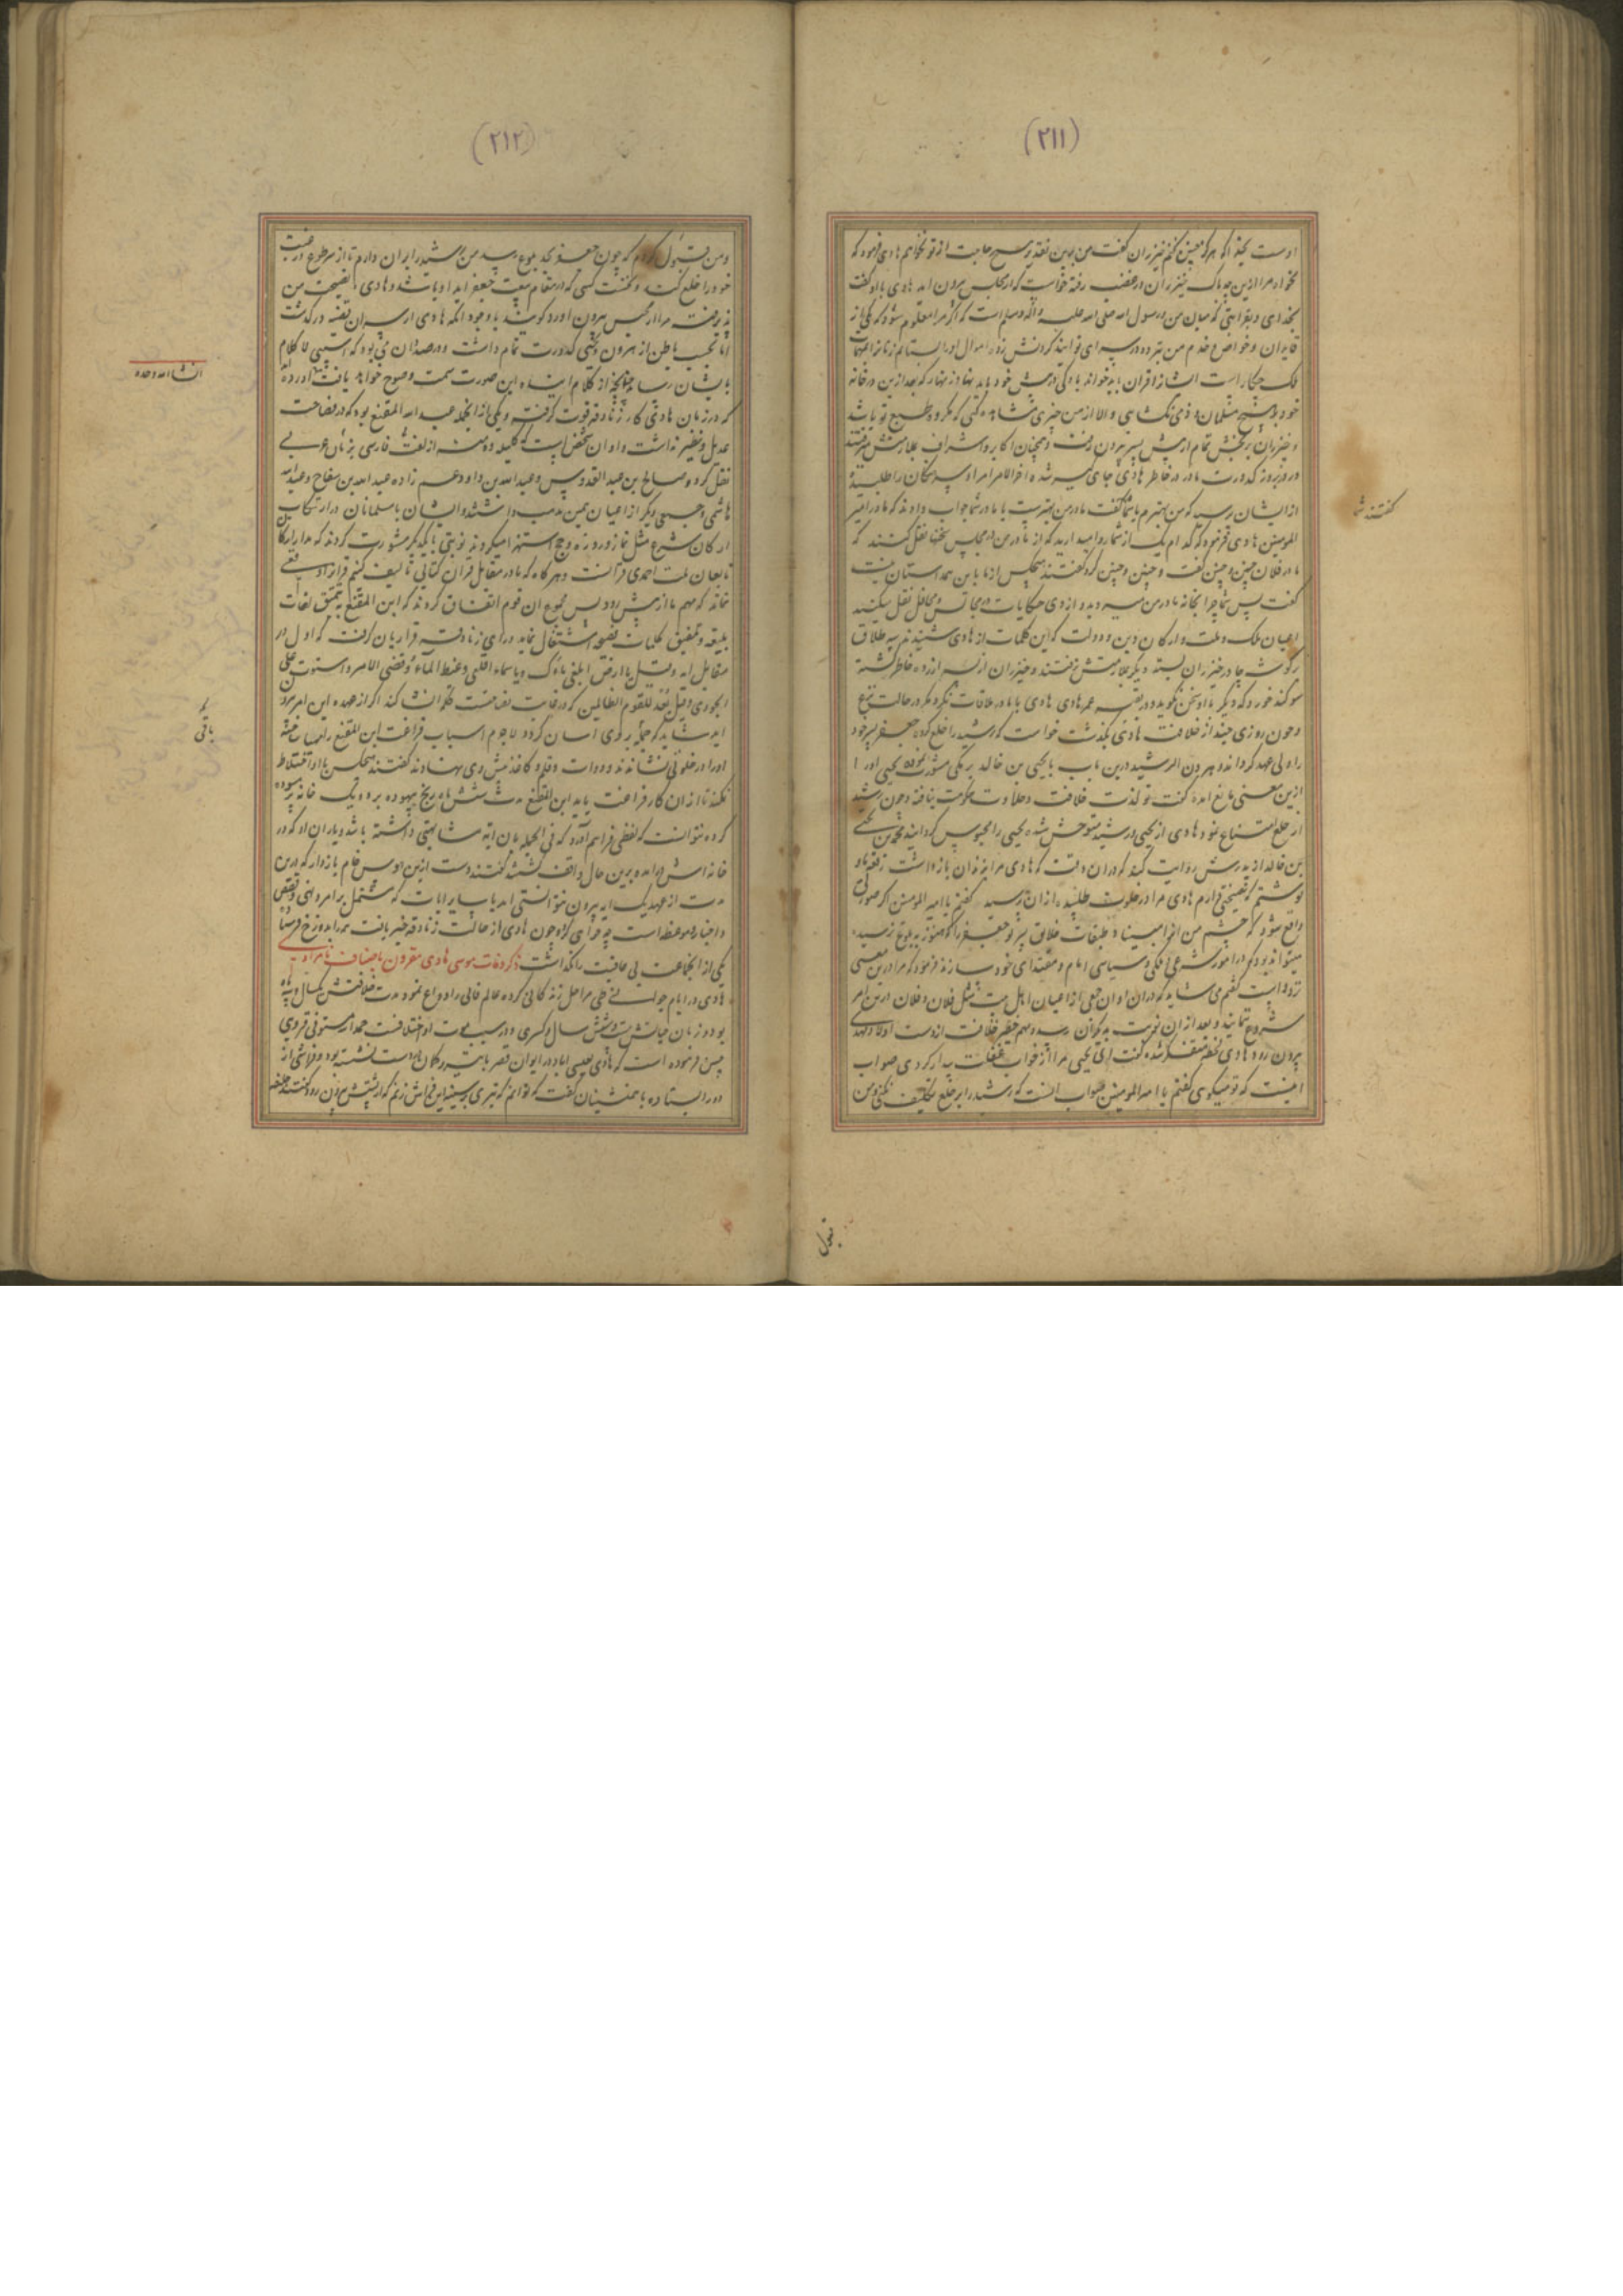 (۲۱۱)
اوست بخدا که هرگز چنین نکنم خیزران گفت من برین تقدیر هیچ حاجت از تو نخواهم هادی فرمود که
نخواه مرا ازین چه باک خیزران در غضب رفته خواست که از مجلس بیرون اید هادی با او گفت
بخدای و بقرابتی که میان من و رسول الله صلی الله علیه و اله و سلم است که اگر مرا معلوم شود که یکی از
قایدان و خواص و خدم من بتردد در سرای تو ایند گردنش زده اموال او را بستانم زنانرا بمهمات
ملک چکار است ایشانرا قران باید خواند یا دوکی در پیش خود باید نهاد زنهار که بعد ازین در خانه
خود بروی هیچ مسلمان و ذمی نکشایی و الا از من چیزی مشاهده کنی که مکروه طبع تو باشد
و خیزران برنجش تمام از پیش پسر بیرون رفت و همچنان اکابر و اشراف بملازمتش میرفتند
و روز بروز کدورت مادر در خاطر هادی جای میشد اخر الامر امراء و سرهنگان را طلبیده
از ایشان پرسید که من بهترم یا شما گفت مادر من بهترست یا مادر شما جواب دادند که مادر امیر
المومنین هادی فرمود که کدام یک از شما روا میدارید که از مادر من در مجالس سخنها نقل کنند که
مادر فلان چنین و چنین گفت و چنین و چنین کرد گفتند هیچکس از ما باین همداستان نیست
گفت پس شما چرا بخانه مادر من میروید و از وی حکایات در مجالس و محافل نقل میکنید
اعیان ملک و ملت و ارکان دین و دولت که این کلمات از هادی شنیدند سه طلاق
بر گوشه چادر خیزران بسته دیگر بملازمتش نرفتند و خیزران از پسر ازرده خاطر گشته
سوگند خورد که دیگر با او سخن نگوید و در بقیه عمر هادی هادی با مادر ملاقات نکرد مگر در حالت نزع
و چون روزی چند از خلافت هادی بگذشت خواست که رشید را خلع کرده جعفر پسر خود
را ولی عهد گرداند و هرون الرشید درین باب با یحیی بن خالد برمکی مشورت نموده یحیی او را
ازین معنی مانع امده گفت تو لذت خلافت و حلاوت حکومت نیافته و چون رشید
از خلع امتناع نمود هادی از یحیی و رشید متوحش شده یحیی را محبوس گردانید محمد بن یحیی
بن خالد از پدرش روایت کند که در ان وقت که هادی مرا بزندان بازداشت رقعه باو
نوشتم که نصیحتی دارم هادی مرا در خلوت طلبیده از ان پرسید گفتم یا امیر المومنین اگر صورتی
واقع شود که چشم من انرا مبیناد طبقات خلایق پسر تو جعفر را که هنوز به بلوغ نرسیده
میتواند بود که در امور شرعی و ملکی و سیاسی امام و مقتدای خود سازند فرمود که مرا درین معنی
تردد است گفتم می شاید که دران اوان جمعی از اعیان اهل بیت مثل فلان و فلان درین امر
شروع نمایند و بعد از ان نوبت بدیگران رسد و مهم خطیر خلافت از دست اولاد مهدی
بیرون رود هادی لحظه متفکر شده گفت ای یحیی مرا از خواب غفلت بیدار کردی صواب
اینست که تو میگوی گفتم یا امیر المومنین صواب انست که رشید را بر خلع تکلیف نکنی و من
گفتند شما
قبول
(۲۱۲)
و من قبول کردم که چون جعفر بحد بلوغ رسد من رشید را بران دارم تا از سر طوع و رغبت
خود را خلع کند و نخست کسی که در مقام بیعت جعفر اید او باشد و هادی نصیحت من
پذیرفت مرا از حبس بیرون اورد گویند با وجود انکه هادی از سر ان قضیه در گذشت
اما بحسب باطن از هرون و یحیی کدورت تمام داشت و در صدد ان می بود که اسیبی لا کلام
بایشان رساند چنانچه از کلام اینده این صورت سمت وضوح خواهد یافت اورده اند
که در زمان هادی کار زنادقه قوت گرفت و یکی از انجمله عبد الله المقنع بود که در فصاحت
عدیل و نظیر نداشت و او ان شخص است که کلیله و دمنه از لغت فارسی بزبان عربی
نقل کرد و صالح بن عبد القدوس و عبد الله بن داود عم زاده عبد الله بن سفاح و عبد الله
هاشمی و جمعی دیگر از اعیان همین مذهب داشتند و ایشان با مسلمانان در ارتکاب
ارکان شرع مثل نماز و روزه و حج استهزا میکردند نوبتی با یکدیگر مشورت کردند که مدار کار
تابعان ملت احمدی قرانست و هر گاه که ما در مقابل قران کتابی تالیف کنیم قرار او نفعی
نماند که مهم ما از پیش رود پس مجموع ان قوم اتفاق کردند که ابن المقنع بتنمیق لغات
بلیغه و تلفیق کلمات فصیحه اشتغال نماید و رای زنادقه قرار بان گرفت که اول در
مقابل ایه و قیل یا ارض ابلعی ماءک و یا سماء اقلعی و غیض الماء و قضی الامر و استوت علی
الجودی و قیل بعدا للقوم الظالمین که در غایت فصاحتست فکر انشا کند اگر از عهده این امر بیرون
اید شاید که جمله بروی اسان گردد لاجرم اسباب فراغت ابن المقنع را مهیا ساخته
او را در خلوتی نشاندند و دوات و قلم و کاغذ پیش وی نهادند گفتند هیچکس با او اختلاط
نکند تا از ان کار فراغت یابد ابن المقنع مدت شش ماه رنج بیهوده برد و یک خانه پر مسوده
کرده نتوانست که لفظی فراهم اورد که فی الجمله بان ایه مشابهتی داشته باشد و یاران او که در
خانه اش درامده برین حال واقف گشتند گفتند دست ازین هوس خام بازدار که درین
مدت از عهد یک ایه بیرون نتوانستی امد با سایر ایات که مشتمل بر امر و نهی و قصص
و اخبار و مواعظ است چه خواهی کرد و چون هادی از حالت زنادقه خبر یافت همه را بدوزخ فرستاد
یکی از انجماعت بی عاقبت را نگذاشت ذکر وفات موسی هادی مقرون باصناف نامرادی
هادی در ایام جوانی طی مراحل زندگانی کرده عالم فانی را وداع نمود مدت خلافتش یکسال و سه ماه
بود و زمان حیاتش بیست و شش سال و کسری و در سبب موت او اختلافست حمد الله مستوفی قزوینی
چنین فرموده است که هادی بعیسی اباد در ایوان قصر با تیر و کمان در دست نشسته بود و فراشی از
دور ایستاده با همنشینان گفت که توانم که تیری بر سینه این فراش زنم که از پشتش بیرون رود گفتند خلیفه
انشا الله وحده
باقی